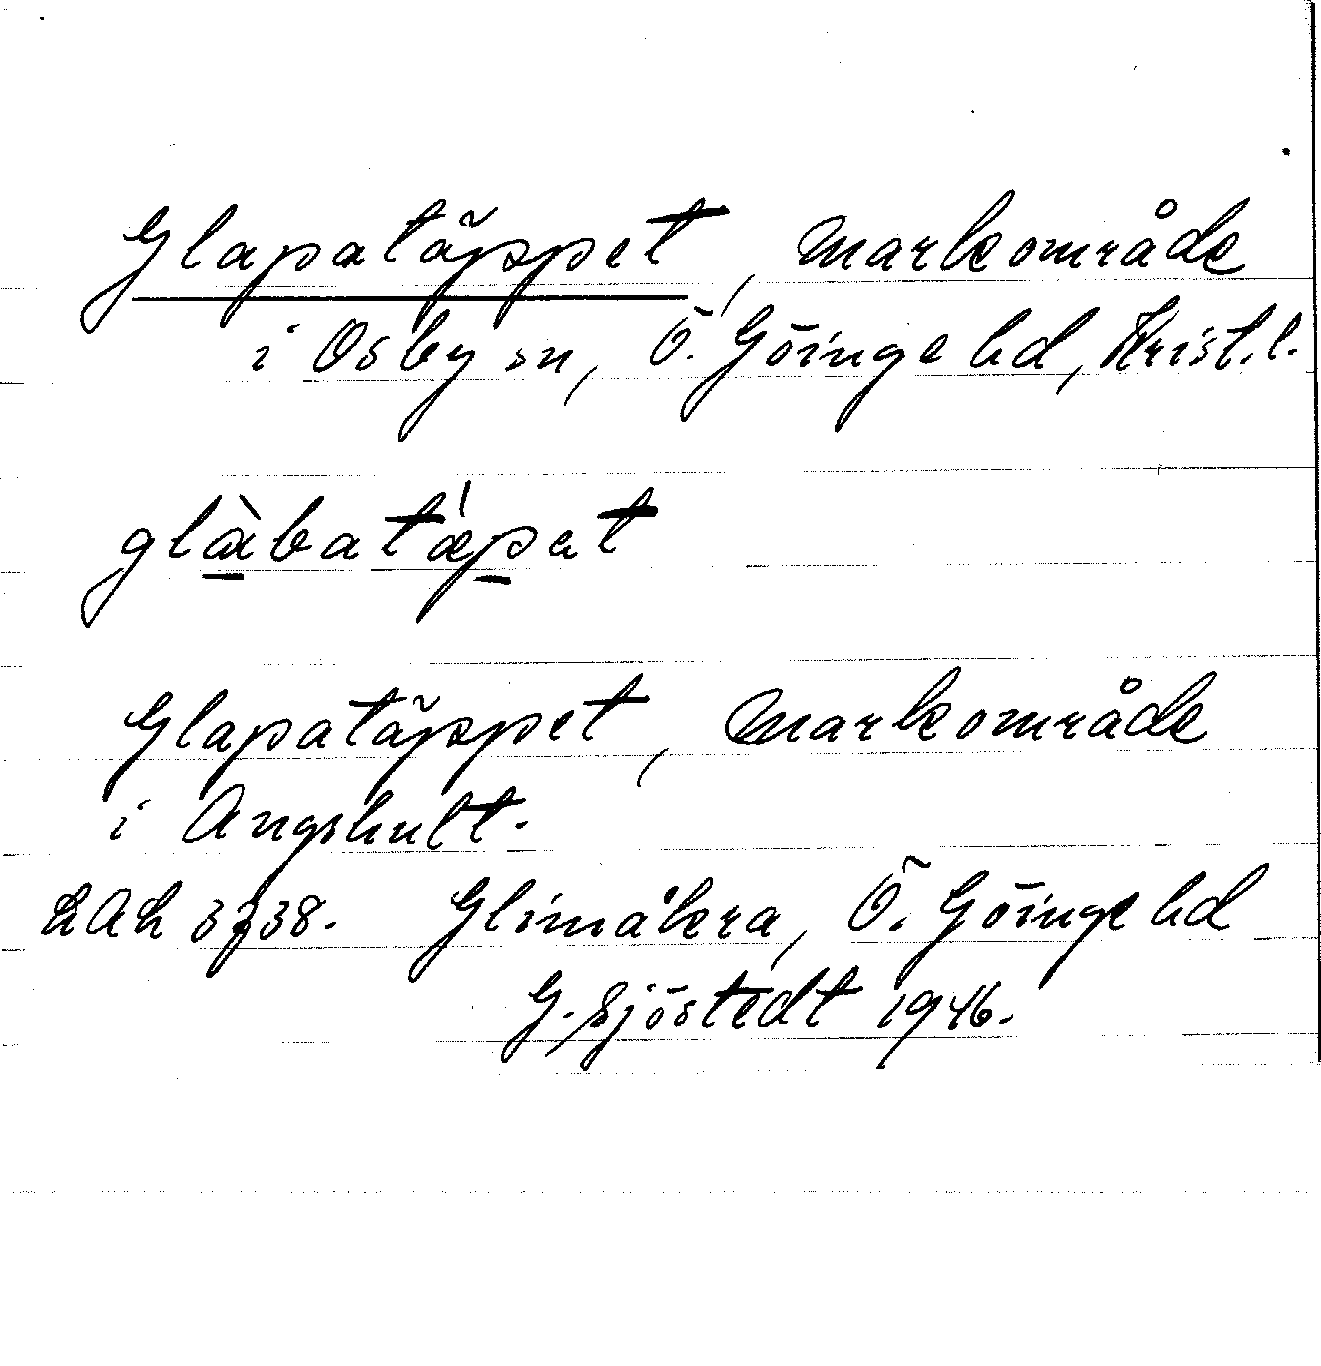 Glapatäppet, markområde
i Osby sn, Ö. Göinge hd, Krist. l.
glàbatǽpat
Glapatäppet, markområde
i Angshult.
LAL 3238. Glimåkra, Ö. Göinge hd
G. Sjöstedt 1946.